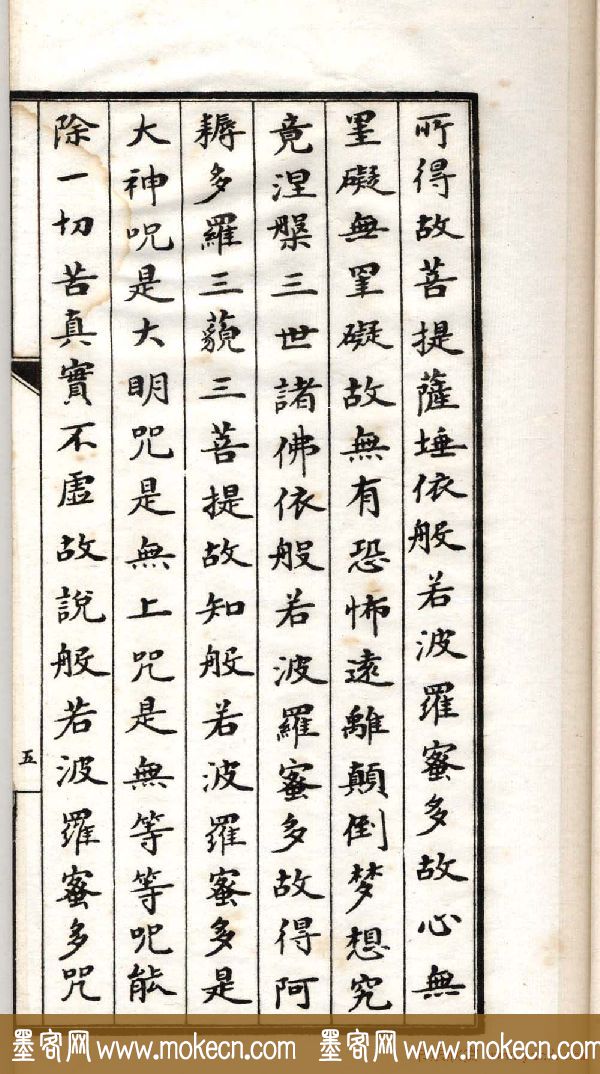 所得故菩提薩埵依般若波羅蜜多故心無
罣礙無罣礙故無有恐怖遠離顛倒梦想究
竟涅槃三世諸佛依般若波羅蜜多故得阿
耨多羅三藐三菩提故知般若波羅蜜多是
大神咒是大明咒是無上咒是無等等咒能
除一切苦真實不虛故說般若波羅蜜多咒
五
墨客网 www.mokecn.com 墨客网 www.mokecn.com